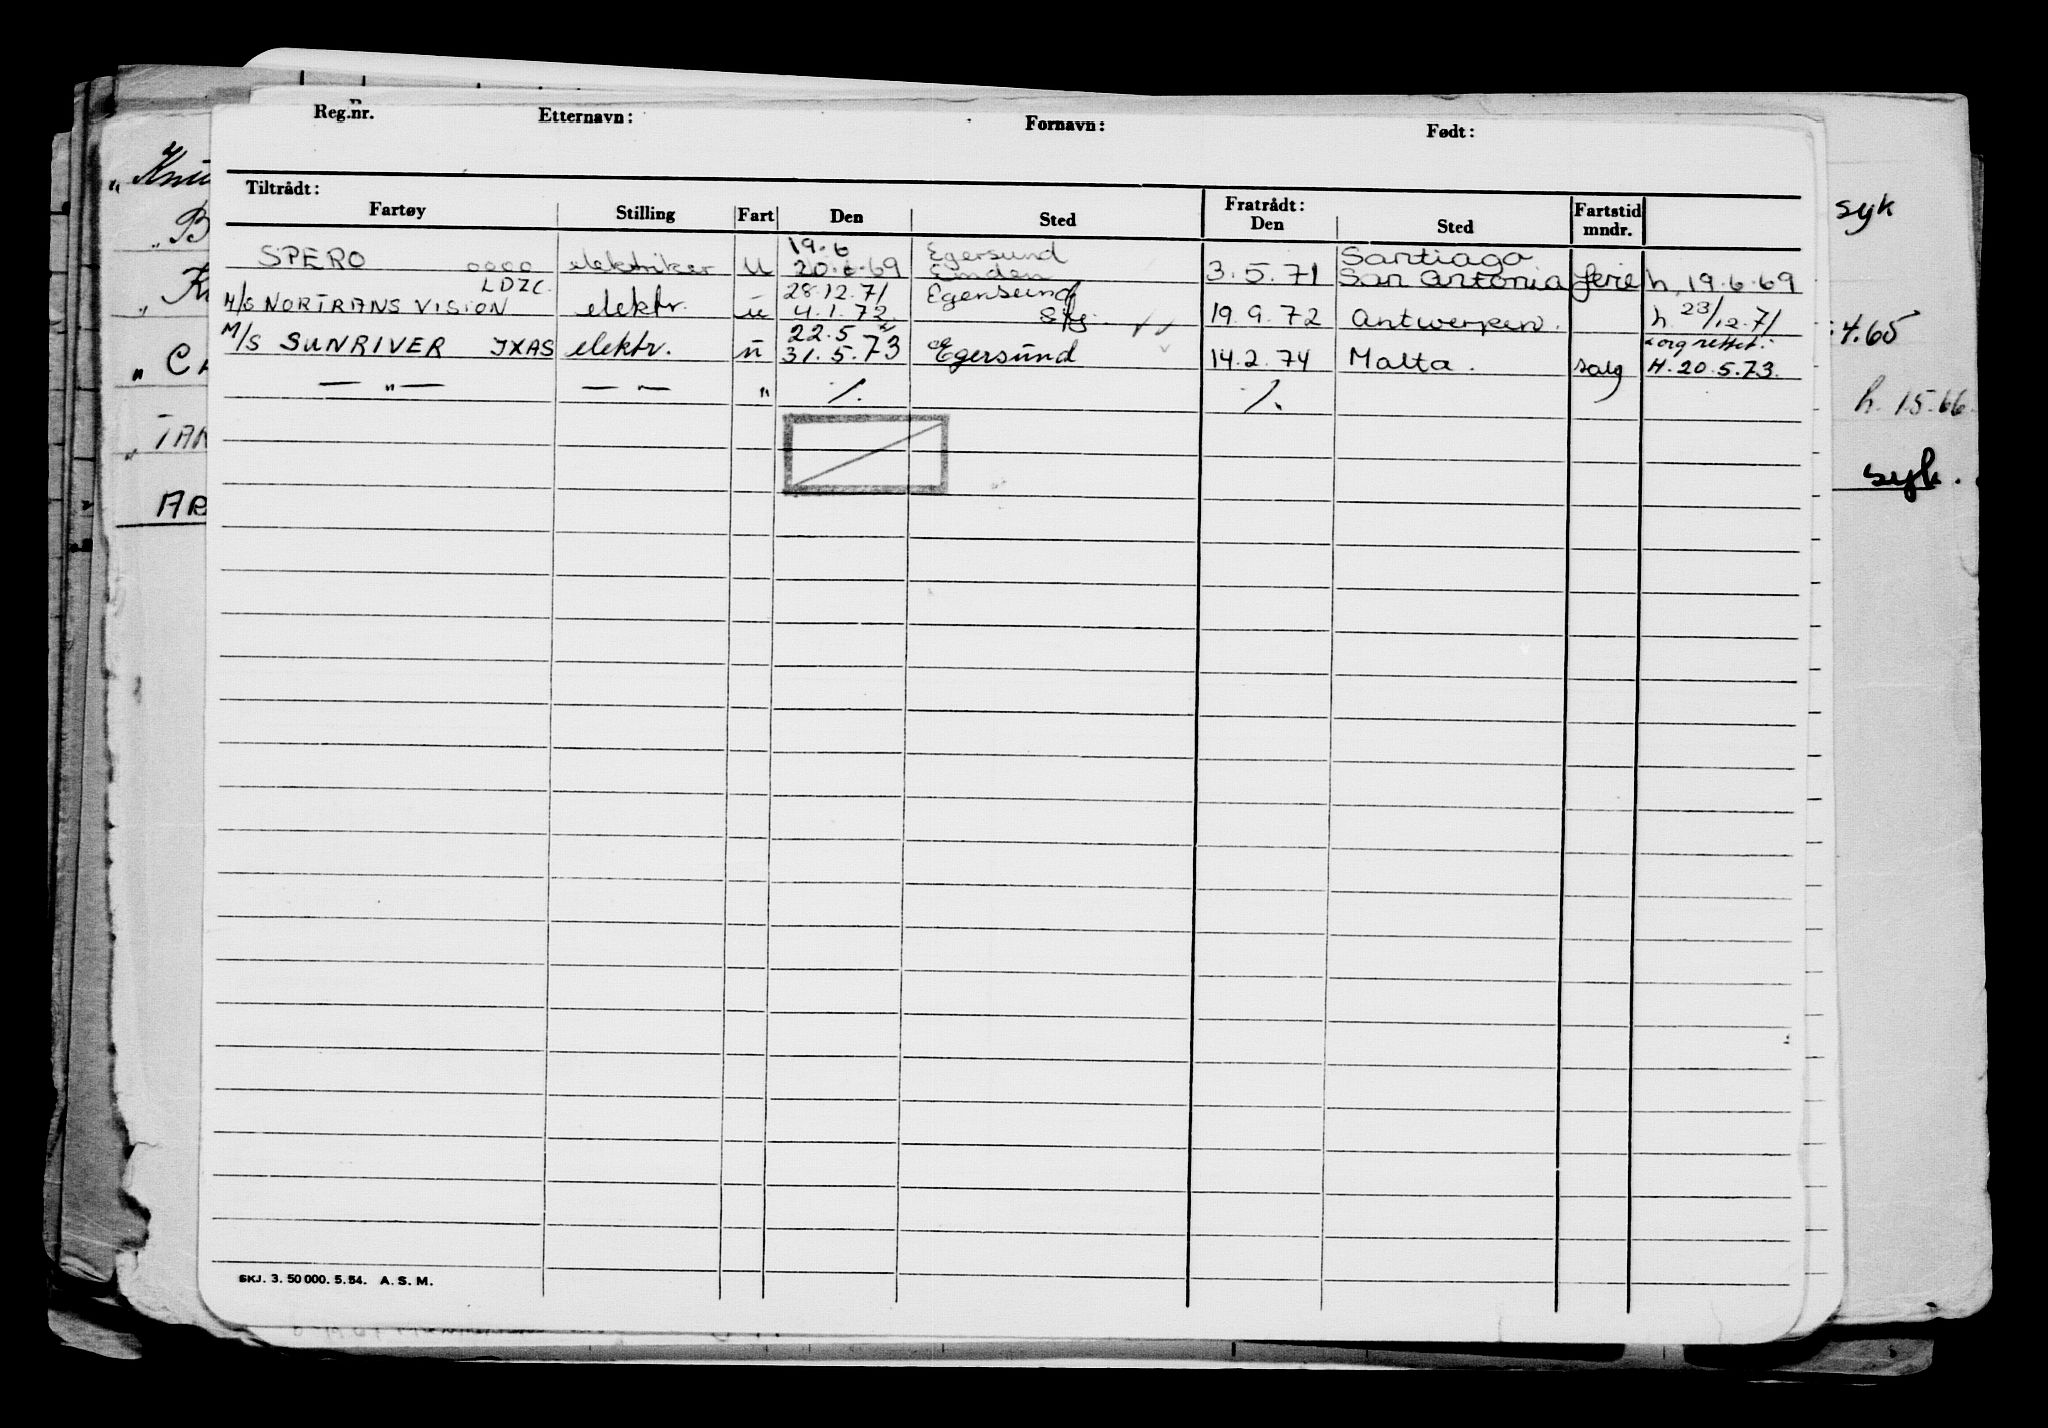 Reg.nr. Etternavn: Fornavn: Født:
Tiltrådt: Fratrådt:
Fartøy Stilling Fart Den Sted Den Sted Fartstid mndr.
19.6 Egersund Santiago
SPERO oooo elektriker u 20.6.69 Emden 3.5.71 San Antonia ferie h. 19.6.69
LDZC 28.12.71 Egersund
M/S NORTRANS VISION elektr. u 4.1.72 19.9.72 Antwerpen. h. 23/12.71
22.5
M/S SUNRIVER JXAS elektr. u 31.5.73 Egersund 14.2.74 Malta. salg H. 20.5.73.
— „ — — „ — " ·/. ·/.
SKJ. 3. 50 000. 5.54. A. S. M.
syk
4.65
h. 1.5.66.
syk.